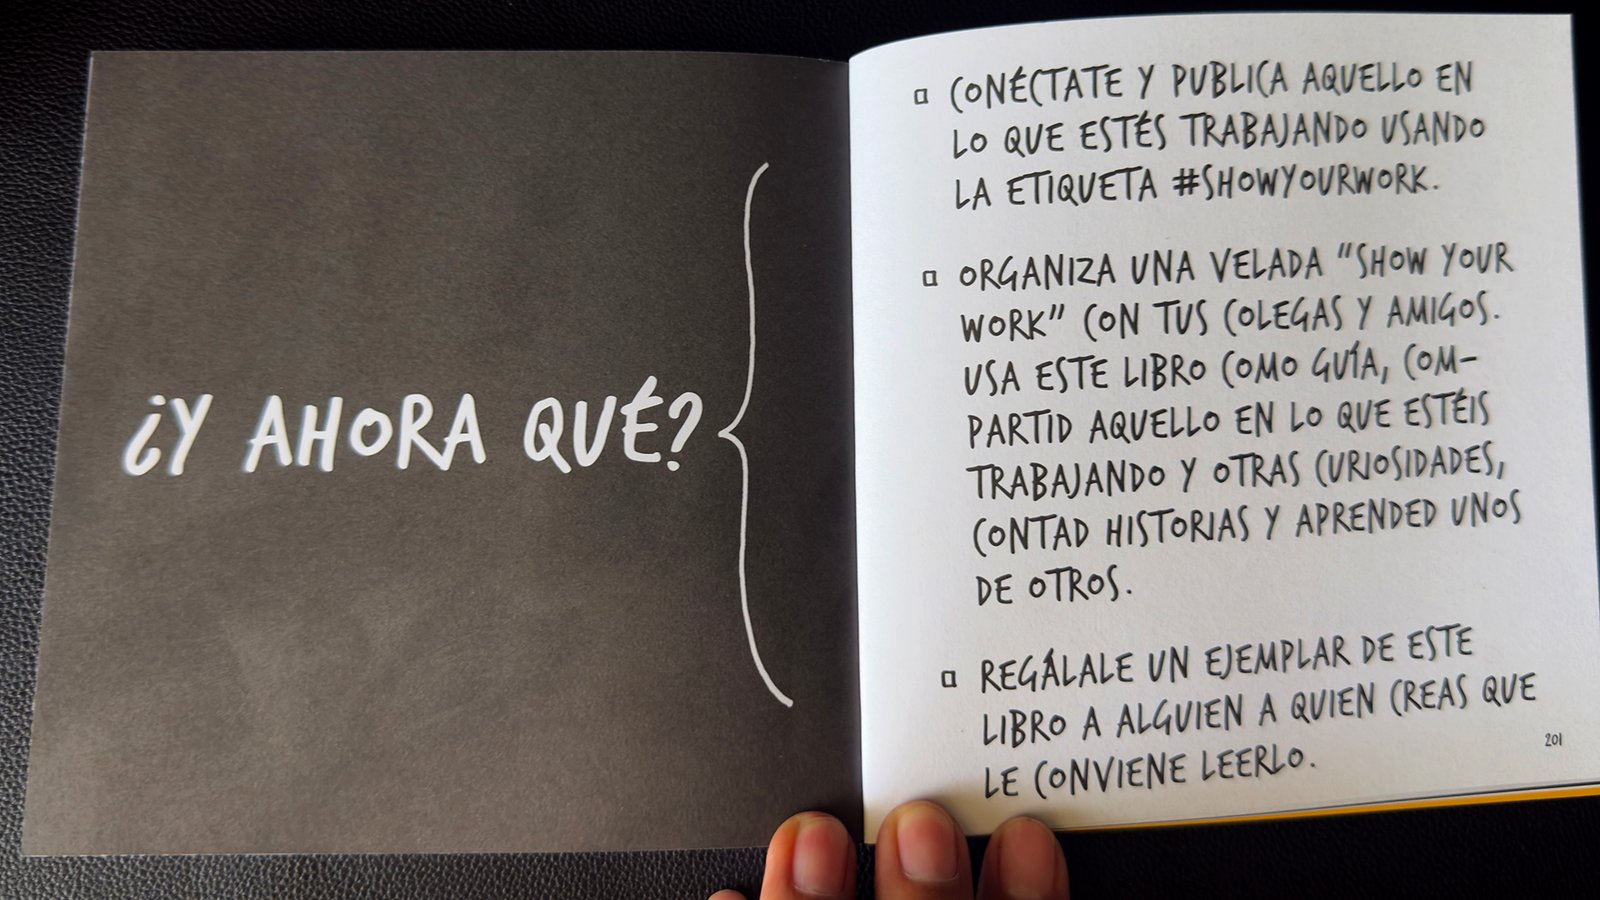 ¿Y AHORA QUÉ?
CONÉCTATE Y PUBLICA AQUELLO EN
LO QUE ESTÉS TRABAJANDO USANDO
LA ETIQUETA #SHOWYOURWORK.
ORGANIZA UNA VELADA "SHOW YOUR
WORK" CON TUS COLEGAS Y AMIGOS.
USA ESTE LIBRO COMO GUÍA, COM-
PARTID AQUELLO EN LO QUE ESTÉIS
TRABAJANDO Y OTRAS CURIOSIDADES,
CONTAD HISTORIAS Y APRENDED UNOS
DE OTROS.
REGÁLALE UN EJEMPLAR DE ESTE
LIBRO A ALGUIEN A QUIEN CREAS QUE
LE CONVIENE LEERLO.
201